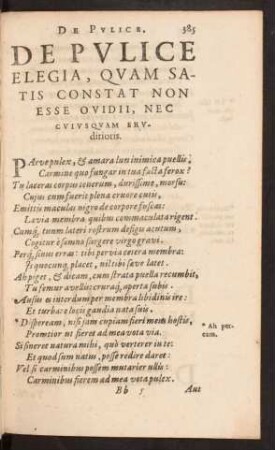 DE PVLICE. 385
DE PVLICE
ELEGIA, QVAM SA-
TIS CONSTAT NON
ESSE OVIDII, NEC
CVIVSQVAM ERV-
ditioris.
PArve pulex, & amara lues inimica puellis,
Carmine quo fungar in tua facta ferox?
Tu laceras corpus tenerum, durissime, morsu:
Cujus cum fueris plena cruore cutis,
Emittis maculas nigro de corpore fuscas:
Levia membra quibus commaculata rigent.
Cumq́; tuum lateri rostrum defigis acutum,
Cogitur è somno surgere virgo gravi.
Perq́; sinus erras: tibi pervia cetera membra:
Is quocunq; placet, nil tibi saeve latet.
Ah piget, & dicam, cum strata puella recumbit,
Tu femur avellis: cruraq́; aperta subis.
* Ausus es interdum per membra libidinis ire:
Et turbare locis gaudia nata suis.
* Dispeream, nisi jam cupiam fieri meus hostis,
Promtior ut fieret ad mea vota via.
* Ah per-
eam.
Si sineret natura mihi, quò verterer in te:
Et quod sum natus, posse redire daret:
Vel si carminibus possem mutarier ullis:
Carminibus fierem ad mea vota pulex.
Bb 5 Aut